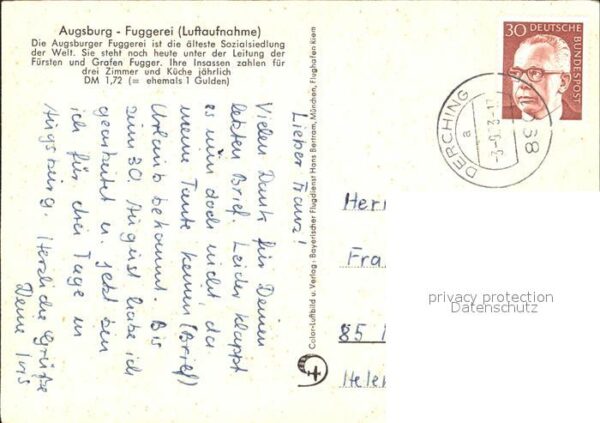 Augsburg - Fuggerei (Luftaufnahme)
Die Augsburger Fuggerei ist die älteste Sozialsiedlung
der Welt. Sie steht noch heute unter der Leitung der
Fürsten und Grafen Fugger. Ihre Insassen zahlen für
drei Zimmer und Küche jährlich
DM 1,72 (= ehemals 1 Gulden)
Lieber Franz!
Vielen Dank für Deinen
letzten Brief. Leider klappt
es nun doch nicht, da
meine Tante keinen (Brief)
Urlaub bekommt. Bis
zum 30. August habe ich
gearbeitet u. jetzt bin
ich für drei Tage in
Augsburg. Herzliche Grüße
Deine Iris
Color-Luftbild u. Verlag: Bayerischer Flugdienst Hans Bertram, München, Flughafen Riem
30 DEUTSCHE
BUNDESPOST
DERCHING
a
Her
Fra
85
Helen
privacy protection
Datenschutz